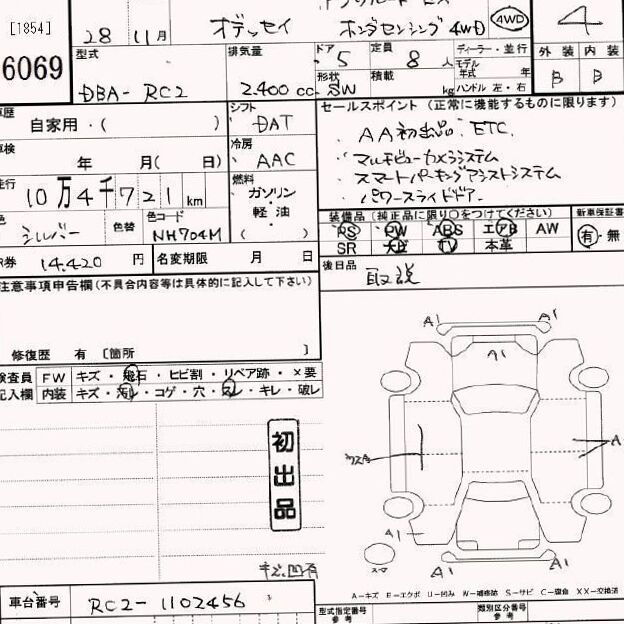 [1854]
28 11月 オデッセイ ホンダセンシング 4WD 4WD 4
6069
型式 排気量 ドア 5 定員 8 人 ディーラー・並行 外装 内装
モデル年式 年
DBA- RC2 2.400 cc 形状 SW 積載 kg ハンドル 左・右 B B
シフト DAT
セールスポイント (正常に機能するものに限ります)
自家用・( )
AA初出品 ETC.
冷房 AAC
マルチビューカメラシステム
年 月( 日)
スマートパーキングアシストシステム
燃料 ガソリン・軽油・( )
パワースライドドア.
10万4千721 km
装備品 (純正品に限り○をつけてください) 新車保証書
シルバー 色替 色コード NH704M
PS PW ABS エアB AW 有・無
SR ナビ TV 本革
券 14.420 円 名変期限 月 日
後日品 取説
注意事項申告欄(不具合内容等は具体的に記入して下さい)
修復歴 有 〔箇所 〕
検査員 FW キズ・飛石・ヒビ割・リペア跡・×要
記入欄 内装 キズ・汚レ・コゲ・穴・スレ・キレ・破レ
A1 A1
A1
初出品
A
A1
A1 A1
キズ.凹有
A-キズ E-エクボ U-凹み W-補修跡 S-サビ C-腐食 XX-交換済
車台番号 RC2-1102456
型式指定番号 参考 類別区分番号 参考